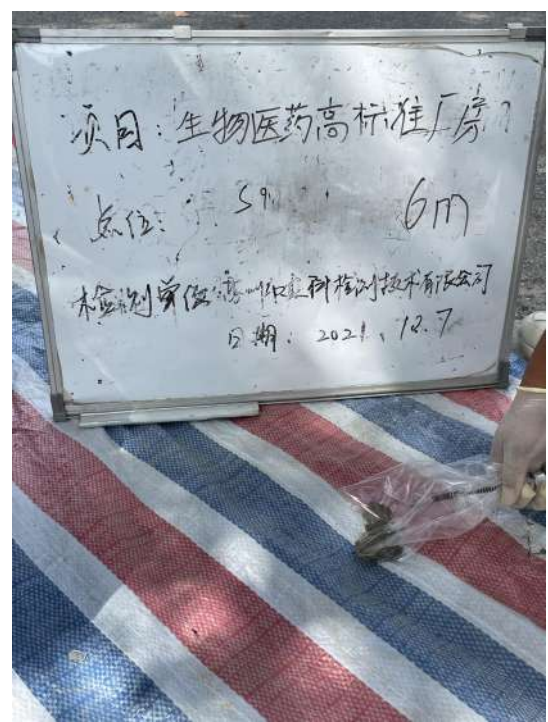 项目：生物医药高标准厂房
点位： S9 6m
检测单位：惠州市宏科检测技术有限公司
日期：2021.12.7